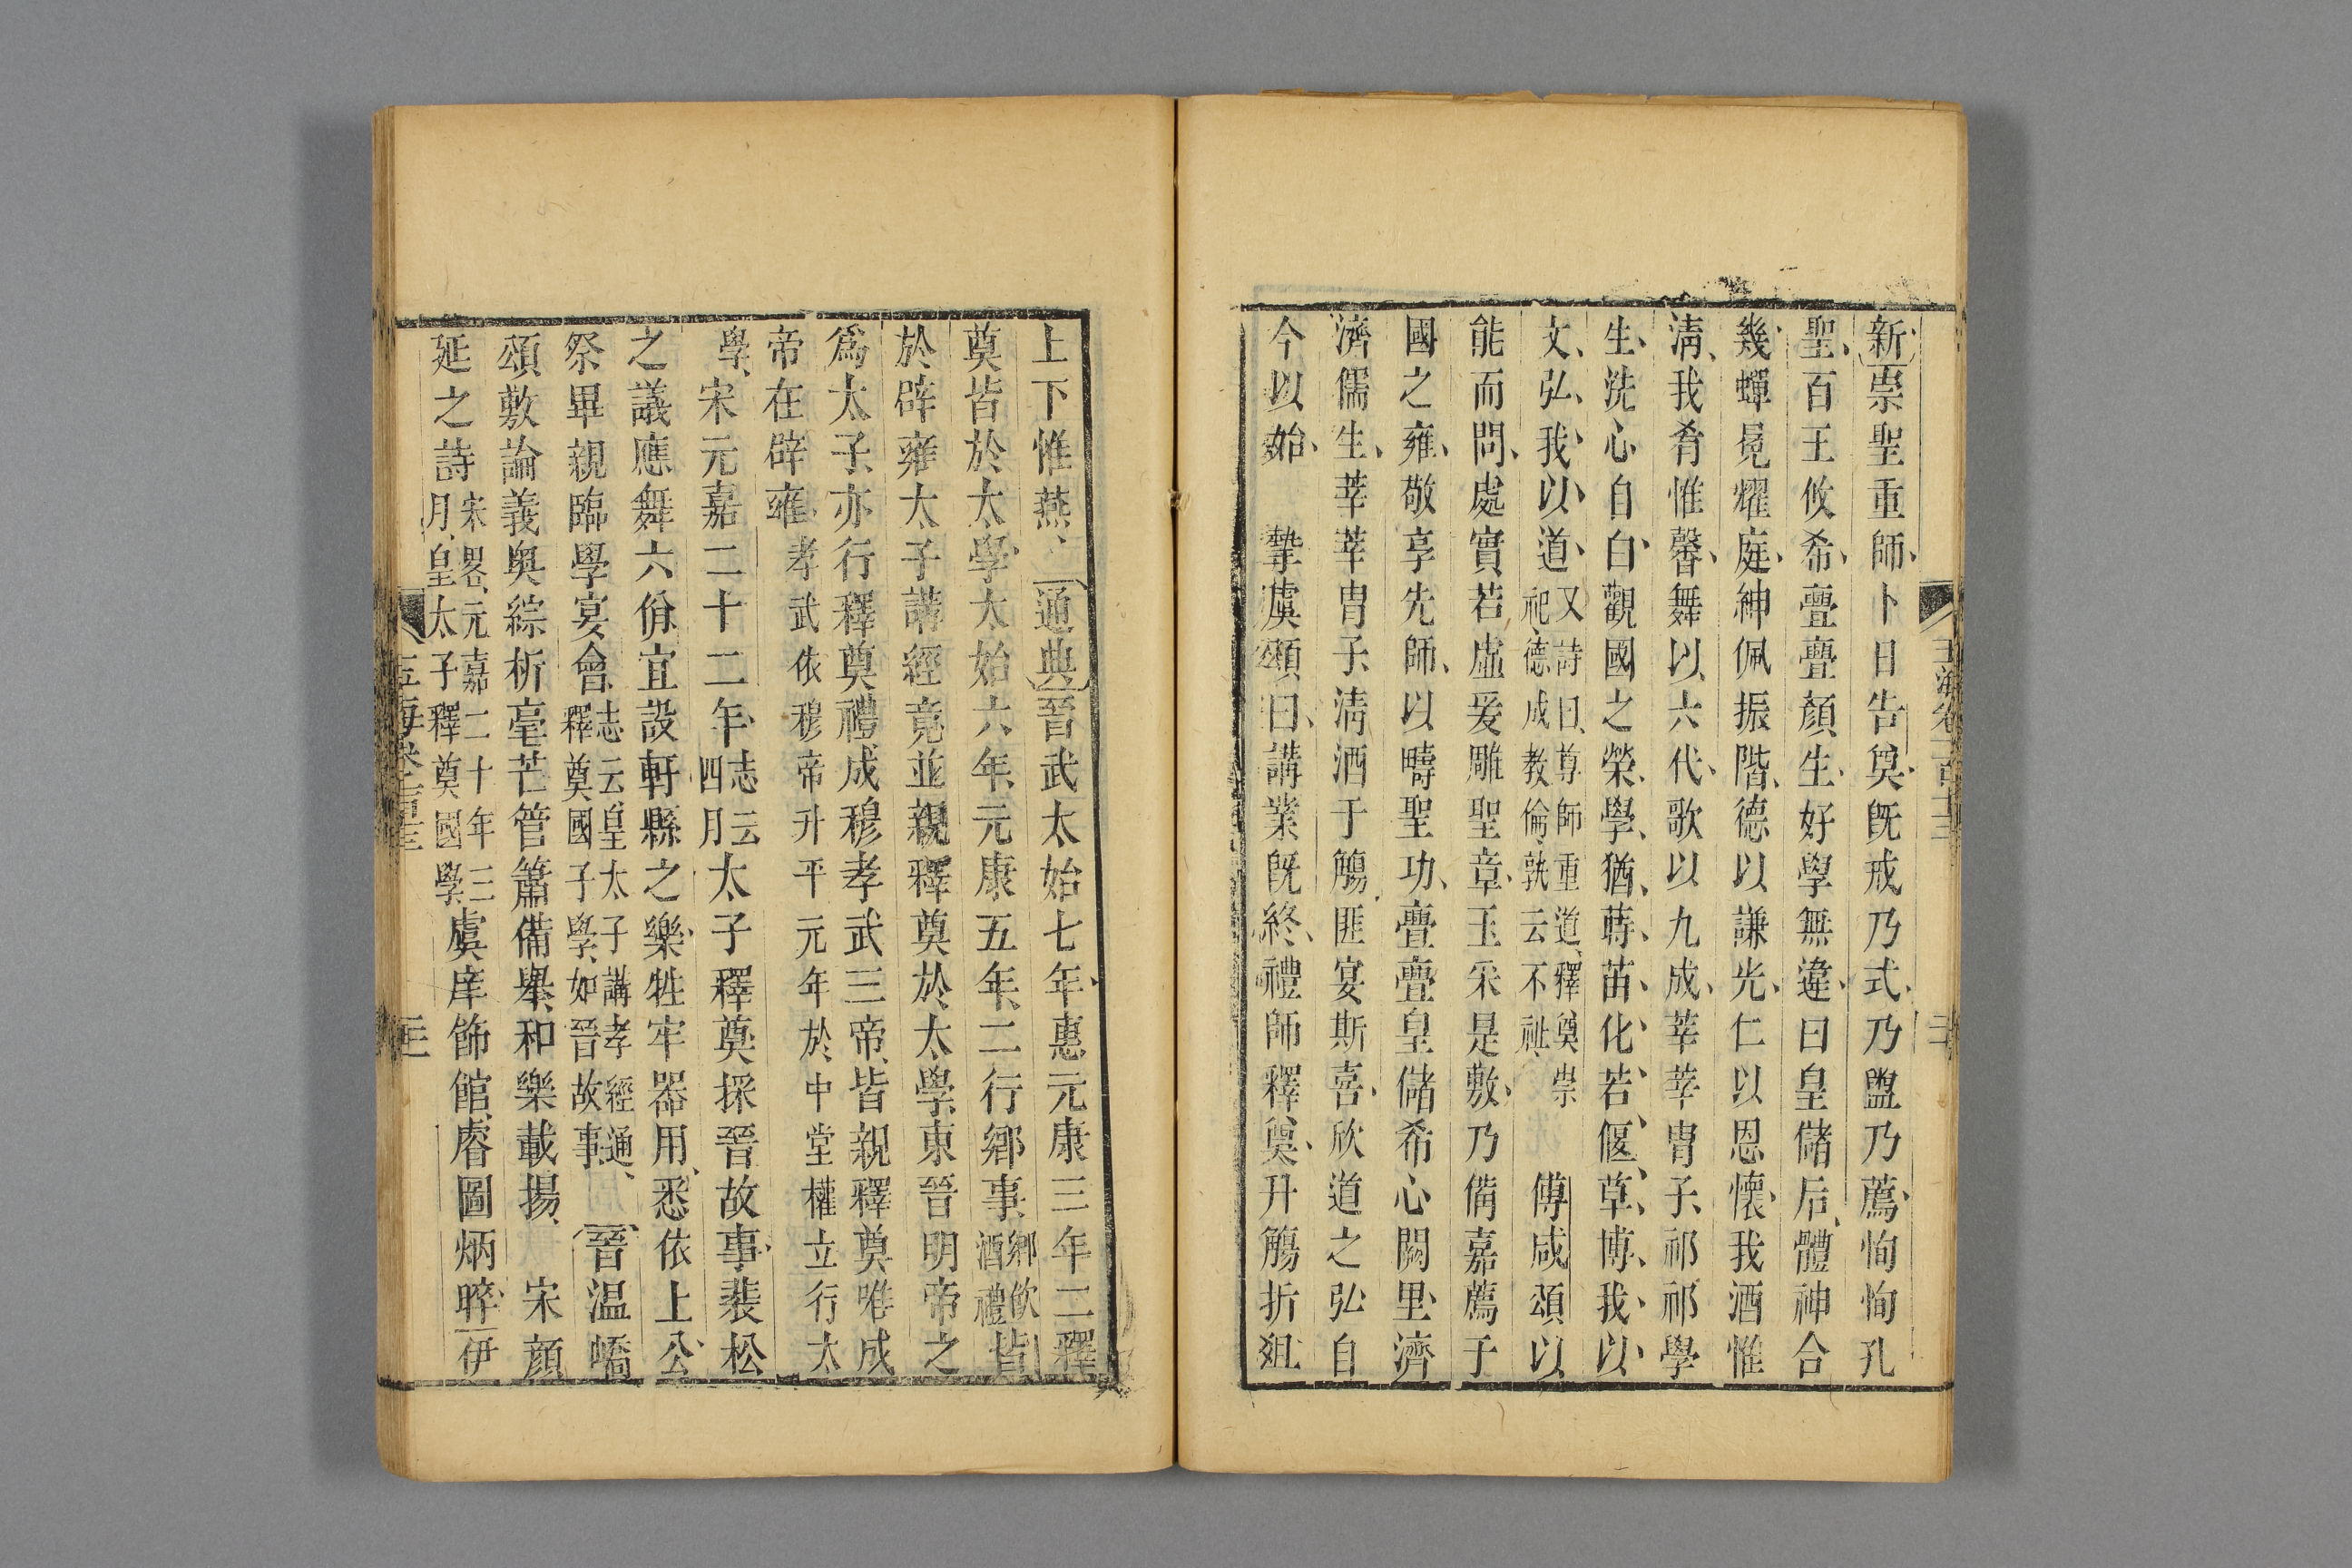 新崇聖重師卜日告奠旣戒乃式乃盥乃薦恂恂孔
聖百王攸希亹亹顏生好學無違曰皇儲后體神合
幾蟬冕燿庭紳佩振階德以謙光仁以恩懷我酒惟
淸我肴惟馨舞以六代歌以九成莘莘胄子祁祁學
生洗心自白觀國之榮學猶蒔苗化若偃草博我以
文弘我以道又詩曰尊師重道釋奠崇祀德成敎倫孰云不祉傅咸頌以
能而問處實若虛爰雕聖章玉采是敷乃備嘉薦于
國之雍敬享先師以疇聖功亹亹皇儲希心闕里濟
濟儒生莘莘胄子淸酒于觴匪宴斯喜欣道之弘自
今以始 摯虞頌曰講業旣終禮師釋奠升觴折俎
上下惟燕 通典晉武太始七年惠元康三年二釋
奠皆於太學太始六年元康五年二行鄉事鄉飮酒禮皆
於辟雍太子講經竟並親釋奠於太學東晉明帝之
爲太子亦行釋奠禮成穆孝武三帝皆親釋奠唯成
帝在辟雍孝武依穆帝升平元年於中堂權立行太
學宋元嘉二十二年志云四月太子釋奠採晉故事裴松
之議應舞六佾宜設軒縣之樂牲牢器用悉依上公
祭畢親臨學宴會志云皇太子講孝經通釋奠國子學如晉故事晉溫嶠
頌敷論義奧綜析毫芒管簫備舉和樂載揚 宋顏
延之詩宋畧元嘉二十年三月皇太子釋奠國學虞庠飾館睿圖炳晬伊